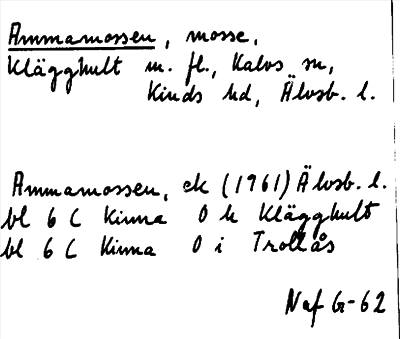 Ammamossen, mosse,
Klägghult m. fl., Kalvs sn,
Kinds hd, Älvsb. l.
Ammamossen, ek (1961) Älvsb. l.
bl 6 C Kinna 0 h Klägghult
bl 6 C Kinna 0 i Trollås
Naf G-62